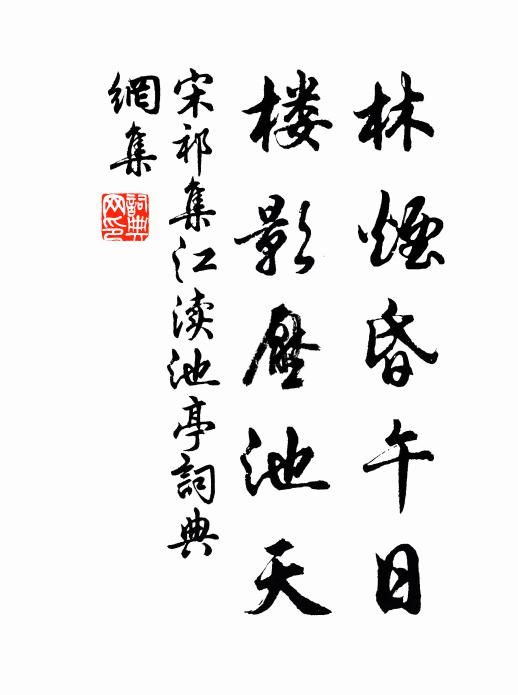 林煙昏午日
楼影壓池天
宋祁集江渎池亭詞典
網集
詞典
网印